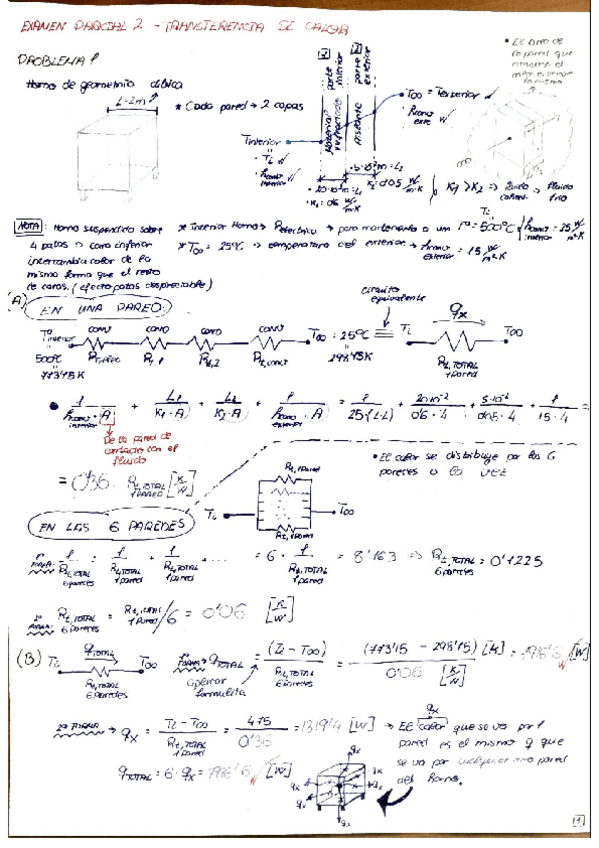 EXAMEN PARCIAL 2 - TRANSFERENCIA DE CALOR
PROBLEMA 1
Horno de geometría cúbica
L=2m
* Cada pared → 2 capas
parte interior
parte exterior
Material refractario
Aislante
Tinterior
TL
hconv interior
T∞ = Texterior
hconv ext
· 20·10⁻²m = L1
· K1 = 0'6 W/m·K
· 5·10⁻²m = L2
K2 = 0'05 W/m·K
K1 > K2 ⇒
• El área de la pared que atraviesa el calor es siempre la misma
NOTA: Horno suspendido sobre 4 patas ⇒ cara inferior
intercambia calor de la
misma forma que el resto
de caras. (efecto patas despreciable)
* Interior Horno → Peléctrica → para mantenerlo a un Tª = 500ºC
hconv interior = 25 W/m²K
* T∞ = 25ºC ⇒ temperatura del exterior → hconv exterior = 15 W/m²K
(A) EN UNA PARED:
Tª interior
500ºC
773'15K
conv
conv
T∞ = 25ºC
298'15K
circuito equivalente
TL
qx
T∞
Rt,TOTAL 1 pared
• 1/(hconv interior · A) + L1/(K1·A) + L2/(K2·A) + 1/(hconv exterior · A) = 1/(25·(L·L)) + 20·10⁻²/(0'6·4) + 5·10⁻²/(0'05·4) + 1/(15·4) =
De la pared de contacto con el fluido
= 0'36 · Rt,TOTAL 1 PARED [K/W]
• El calor se distribuye por las 6
paredes a la vez
EN LAS 6 PAREDES
TL
Rt,1pared
T∞
Rt,1pared
1ª FORMA: 1/Rt,TOTAL 6 paredes = 1/Rt,TOTAL 1 pared + 1/Rt,TOTAL 1 pared + .... = 6 · 1/Rt,TOTAL 1 pared = 8'163 ⇒ Rt,TOTAL 6 paredes = 0'1225
2ª FORMA: Rt,TOTAL 6 paredes = Rt,TOTAL 1 pared/6 = 0'06 [K/W]
(B) TL
qTOTAL
T∞
Rt,TOTAL 6 paredes
1ª FORMA → qTOTAL = (TL - T∞)/Rt,TOTAL 6 paredes = (773'15 - 298'15) [K]/0'06 [K/W] = 7916'6 [W]
aplicar formulita
2ª FORMA → qx = (TL - T∞)/Rt,TOTAL 1 PARED = 475/0'36 = 1319'4 [W] ⇒ El calor qx que se va por 1
pared es el mismo q que
se va por cualquier otra pared
del horno.
qTOTAL = 6 · qx = 7916'6 [W]
qx
qx
qx
qx
qx
1